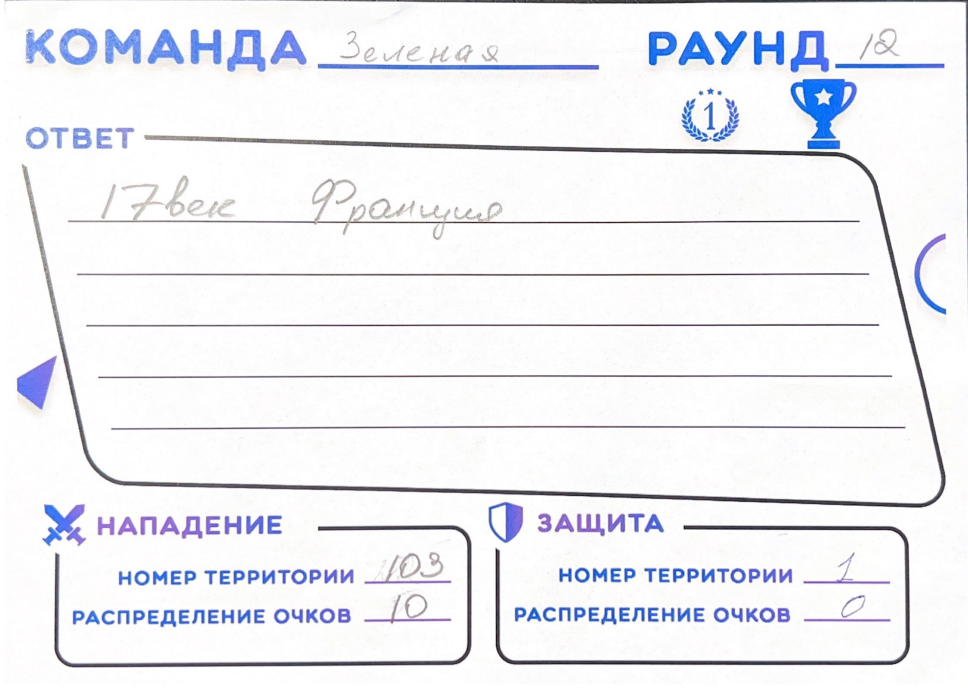 КОМАНДА Зеленая РАУНД 12
1
ОТВЕТ
17 век Франция
НАПАДЕНИЕ
НОМЕР ТЕРРИТОРИИ 103
РАСПРЕДЕЛЕНИЕ ОЧКОВ 10
ЗАЩИТА
НОМЕР ТЕРРИТОРИИ 1
РАСПРЕДЕЛЕНИЕ ОЧКОВ 0